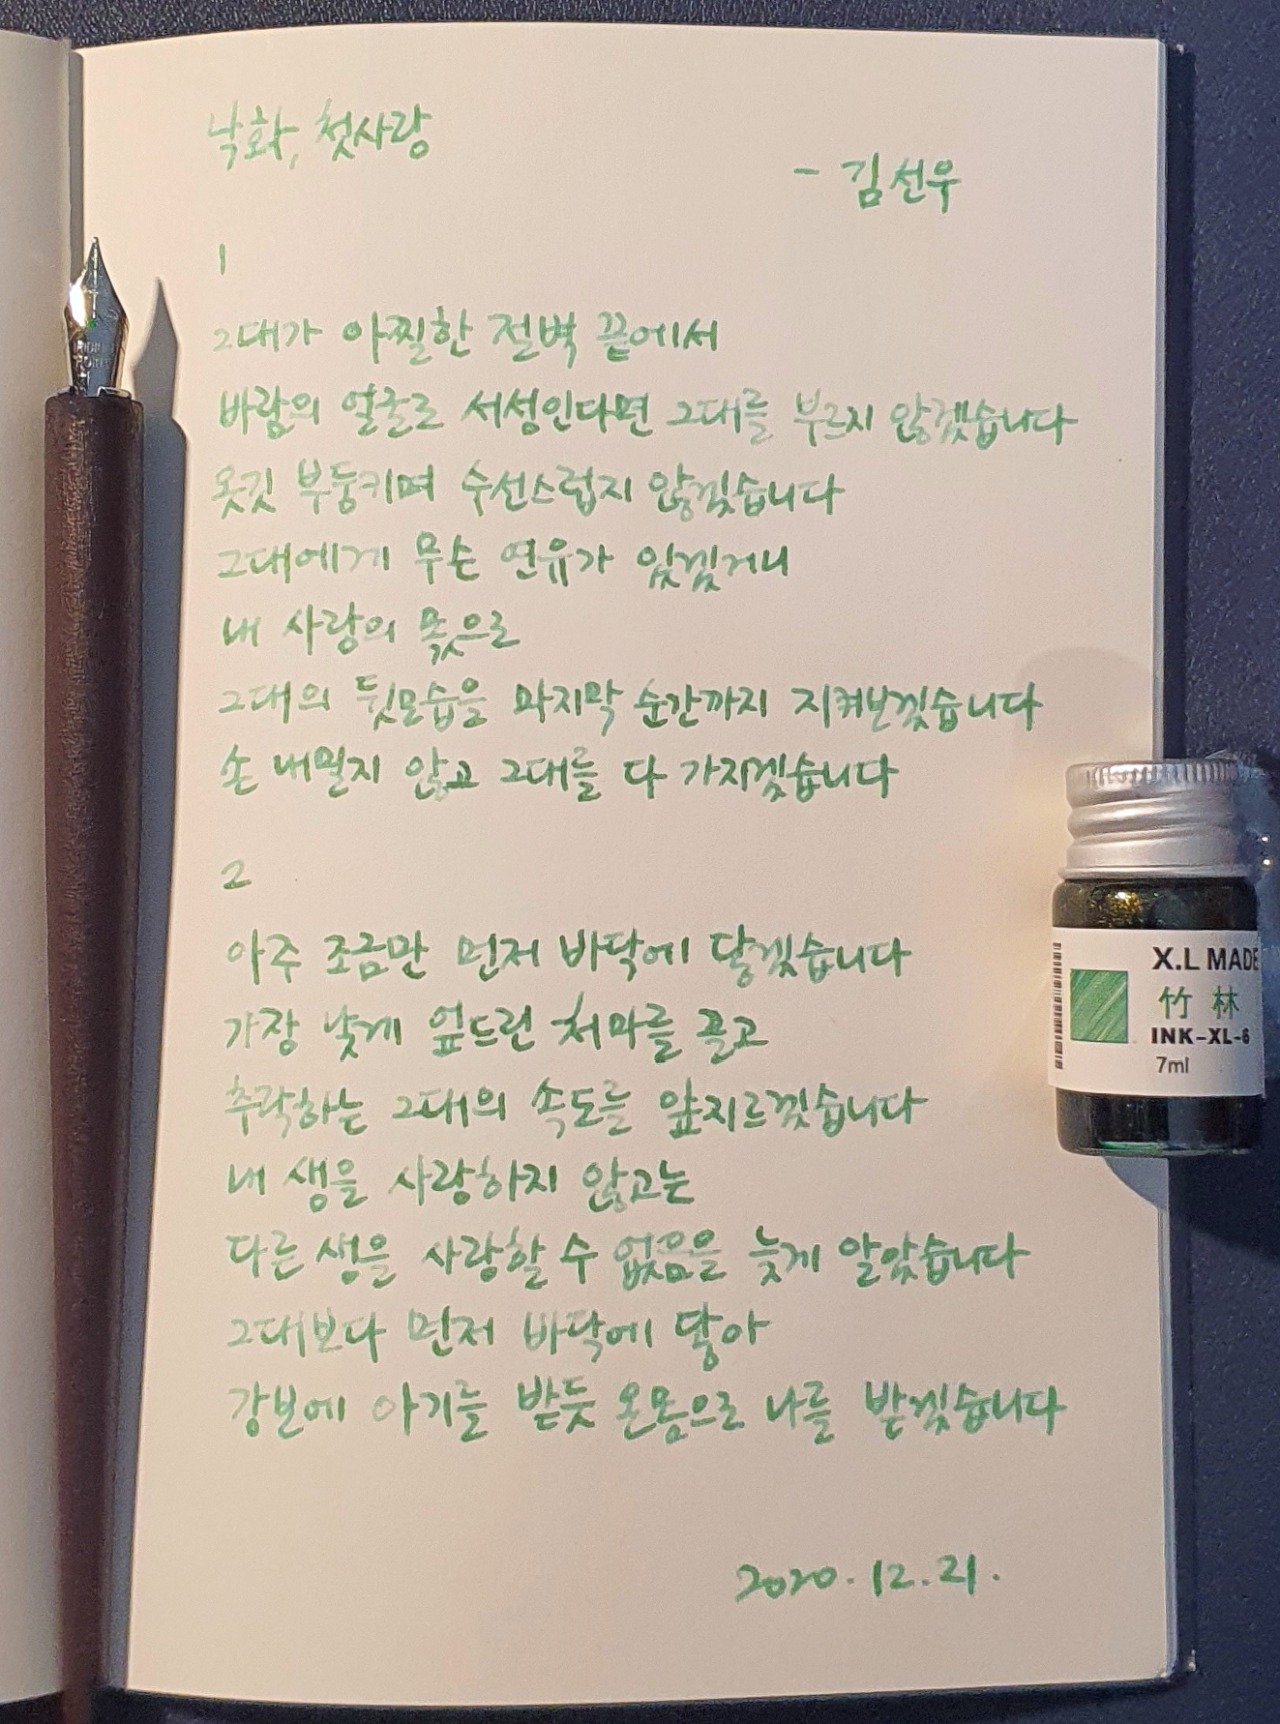 낙화, 첫사랑
- 김선우
1
그대가 아찔한 절벽 끝에서
바람의 얼굴로 서성인다면 그대를 부르지 않겠습니다
옷깃 부둥키며 수선스럽지 않겠습니다
그대에게 무슨 연유가 있겠거니
내 사랑의 몫으로
그대의 뒷모습을 마지막 순간까지 지켜보겠습니다
손 내밀지 않고 그대를 다 가지겠습니다
2
아주 조금만 먼저 바닥에 닿겠습니다
가장 낮게 엎드린 처마를 끌고
추락하는 그대의 속도를 앞지르겠습니다
내 생을 사랑하지 않고는
다른 생을 사랑할 수 없음을 늦게 알았습니다
그대보다 먼저 바닥에 닿아
강보에 아기를 받듯 온몸으로 나를 받겠습니다
2020. 12. 21.
X.L MADE
竹 林
INK-XL-6
7ml